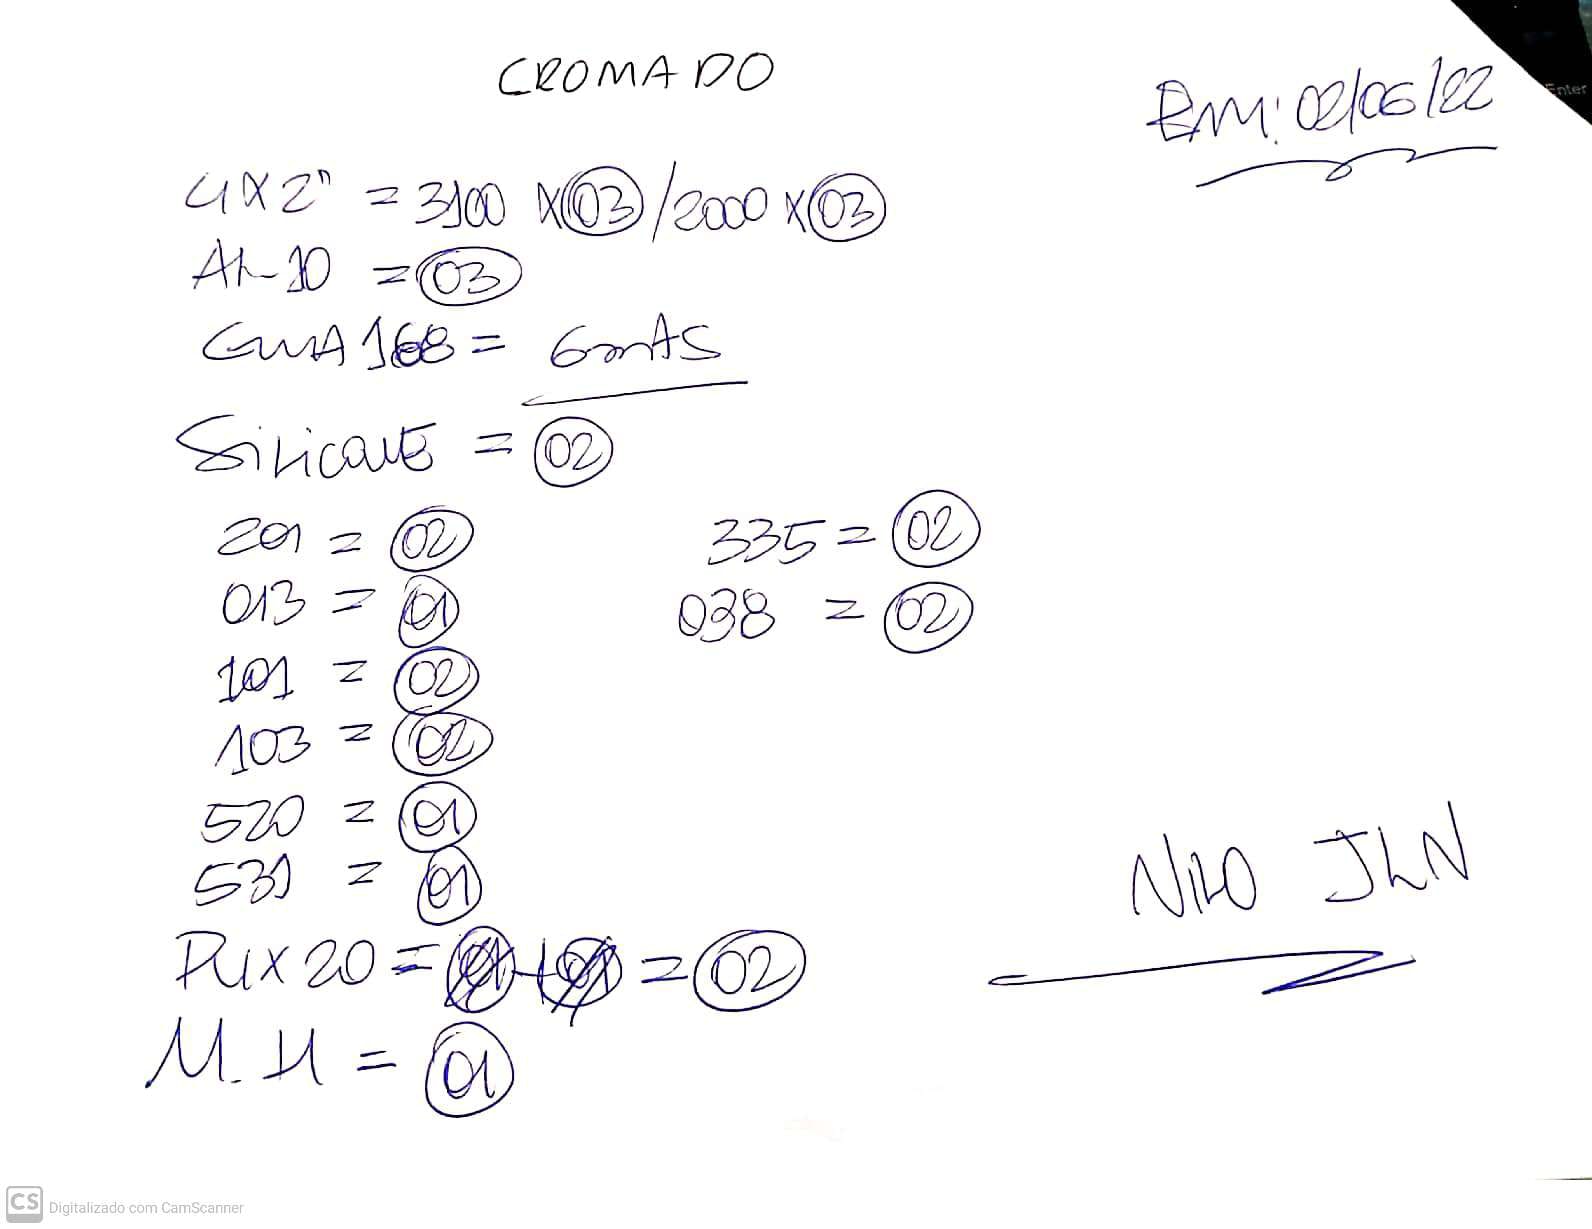 CROMADO
Em: 02/06/22
4x2" = 3100 x 03 / 2000 x 03
AL-10 = 03
168 =
Silicone = 02
201 = 02
335 = 02
013 = 01
038 = 02
101 = 02
103 = 02
520 = 01
531 = 01
20 = 01 + 01 = 02
M.H = 01
NILO JLN
Enter
CS Digitalizado com CamScanner